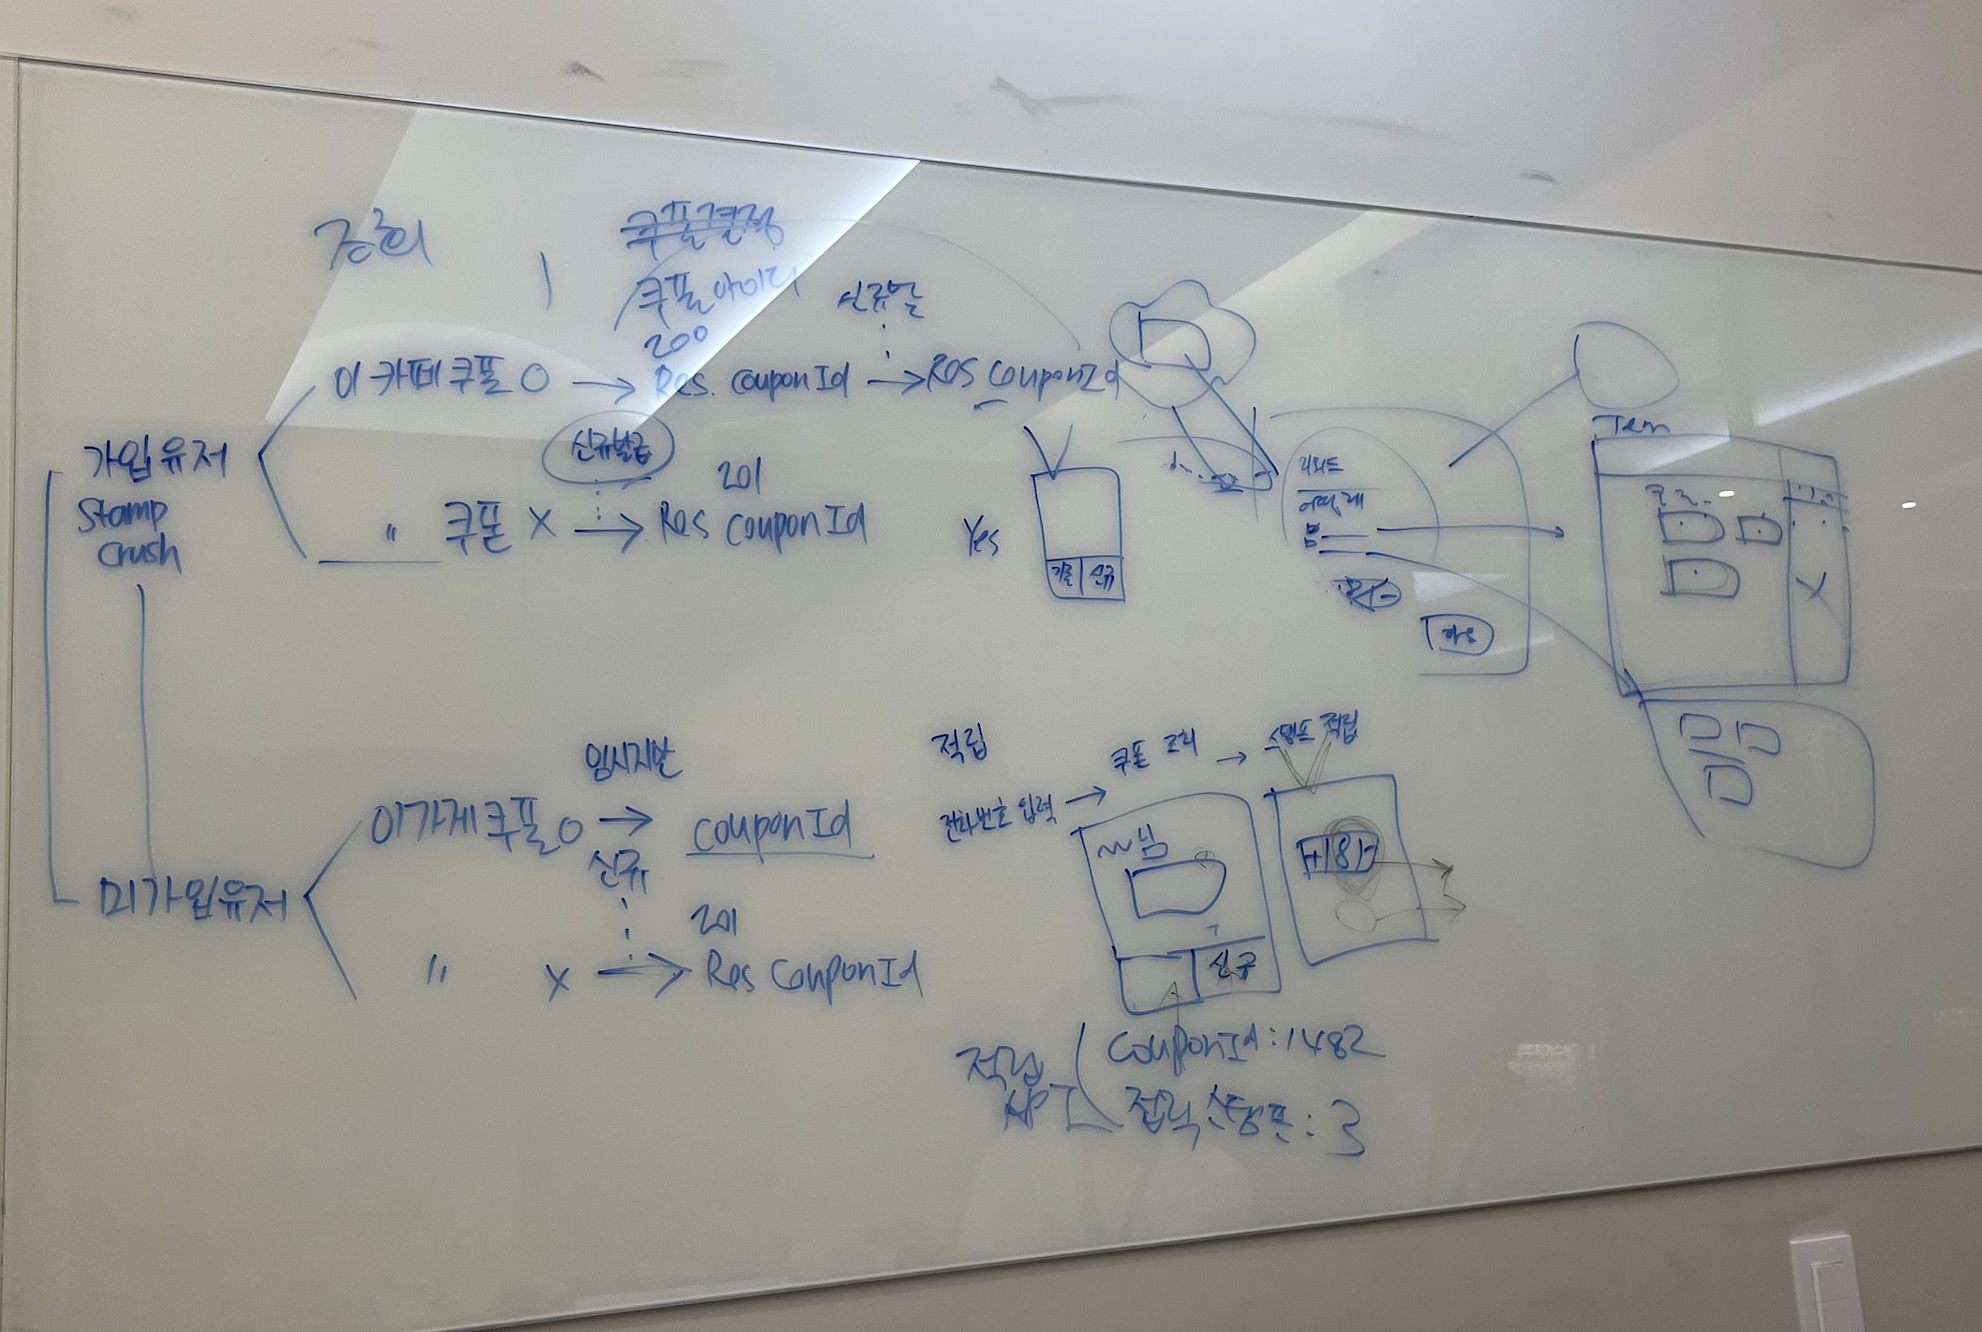 조회
쿠폰결정
쿠폰아이디
200
이 카페 쿠폰 O → Res. couponId → Res CouponId
가입유저
Stamp
crush
신규발급
201
" 쿠폰 X → Res couponId
Yes
기존 신규
리워드
Tem
임시지만
이가게쿠폰 O → couponId
신규
미가입유저
201
" X → Res CouponId
적립
전화번호 입력 → 쿠폰 조회 → 스탬프 적립
님
신규
적립
API
CouponId : 1482
적립 스탬프 : 3